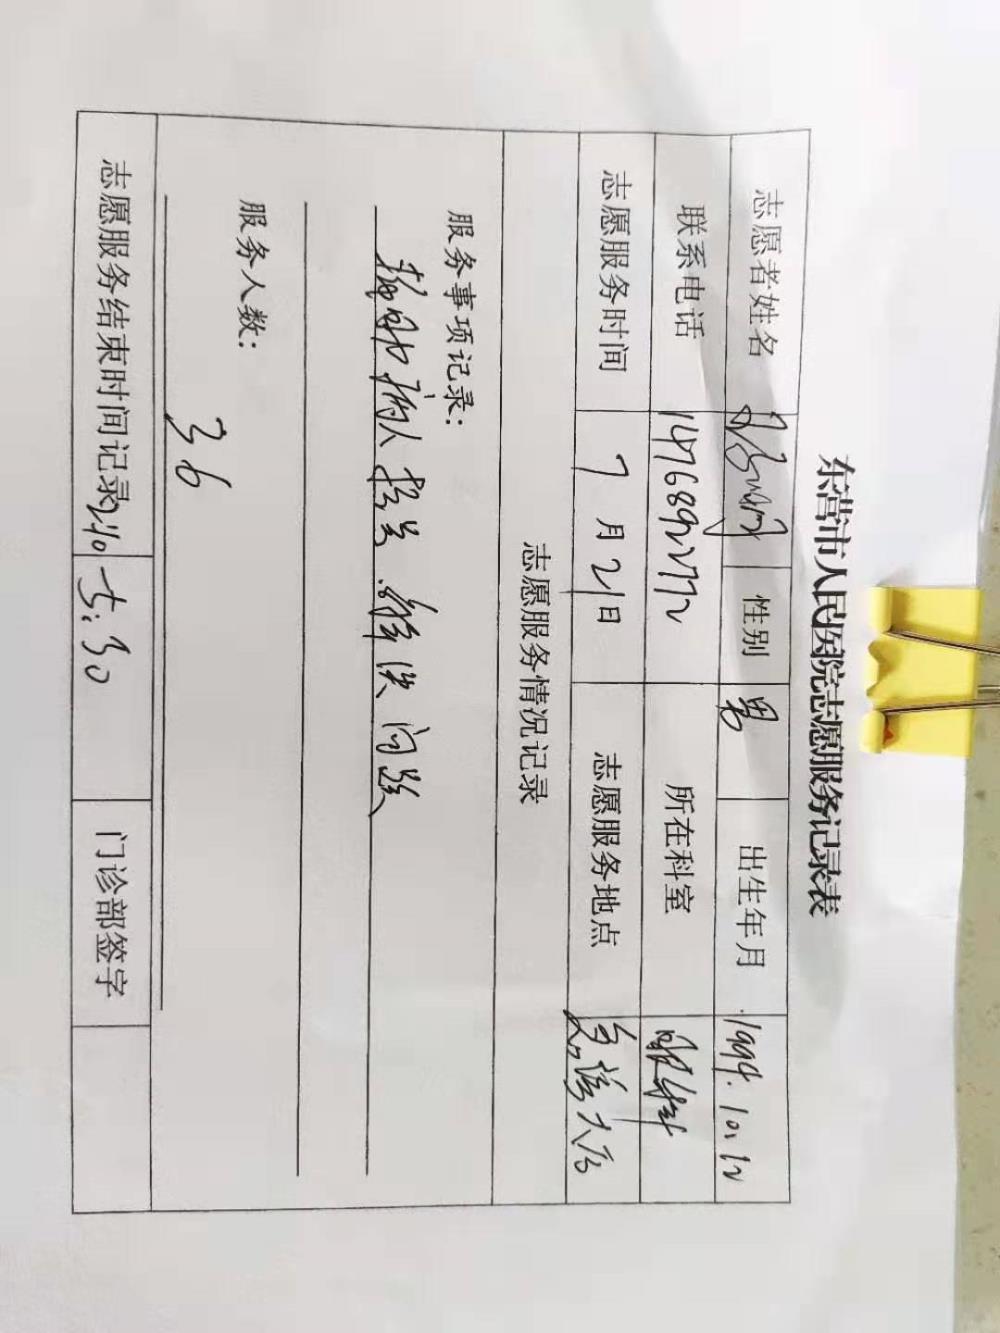 东营市人民医院志愿服务记录表
志愿者姓名 性别 男 出生年月 1994.10.12
联系电话 14768927772 所在科室 眼科
志愿服务时间 7月21日 志愿服务地点 急诊大厅
志愿服务情况记录
服务事项记录:
病人 解决问题
服务人数:
36
志愿服务结束时间记录 :30 门诊部签字